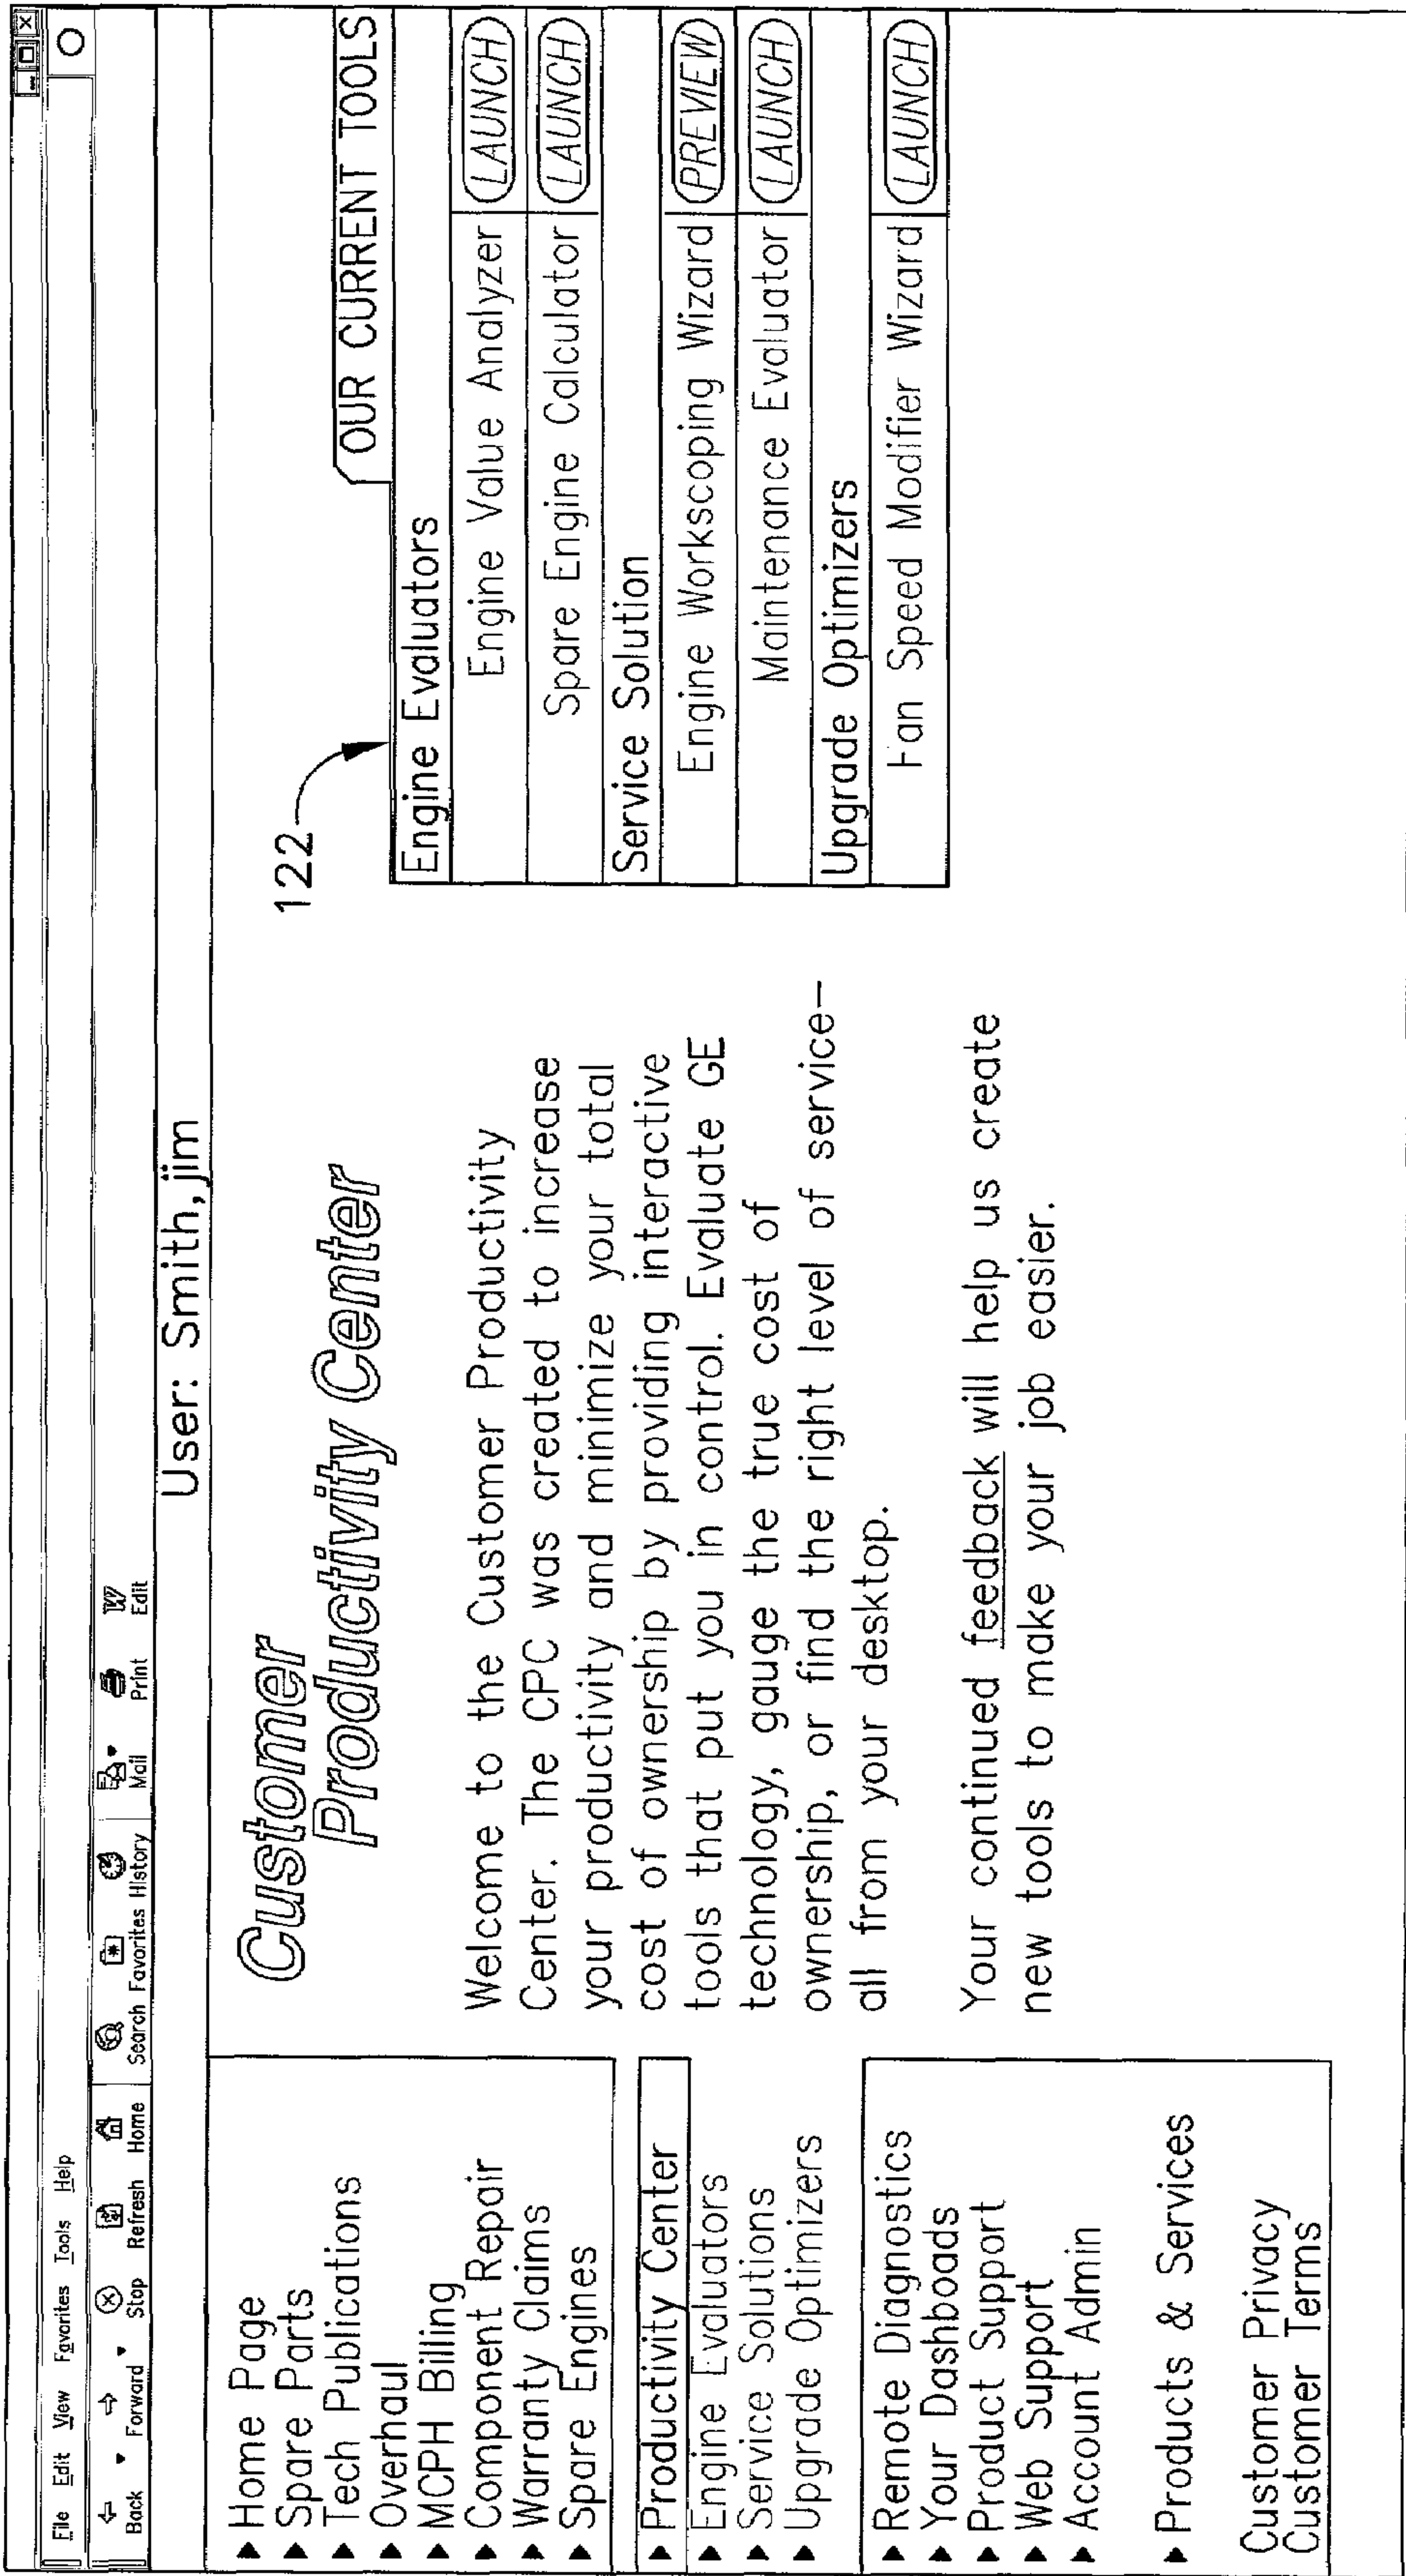 File Edit View Favorites Tools Help
Back Forward Stop Refresh Home Search Favorites History Mail Print Edit
User: Smith,jim
Home Page
Spare Parts
Tech Publications
Overhaul
MCPH Billing
Component Repair
Warranty Claims
Spare Engines
Productivity Center
Engine Evaluators
Service Solutions
Upgrade Optimizers
Remote Diagnostics
Your Dashboads
Product Support
Web Support
Account Admin
Products & Services
Customer Privacy
Customer Terms
Customer
Productivity Center
Welcome to the Customer Productivity
Center. The CPC was created to increase
your productivity and minimize your total
cost of ownership by providing interactive
tools that put you in control. Evaluate GE
technology, gauge the true cost of
ownership, or find the right level of service–
all from your desktop.
Your continued feedback will help us create
new tools to make your job easier.
122
OUR CURRENT TOOLS
Engine Evaluators
Engine Value Analyzer LAUNCH
Spare Engine Calculator LAUNCH
Service Solution
Engine Workscoping Wizard PREVIEW
Maintenance Evaluator LAUNCH
Upgrade Optimizers
Fan Speed Modifier Wizard LAUNCH